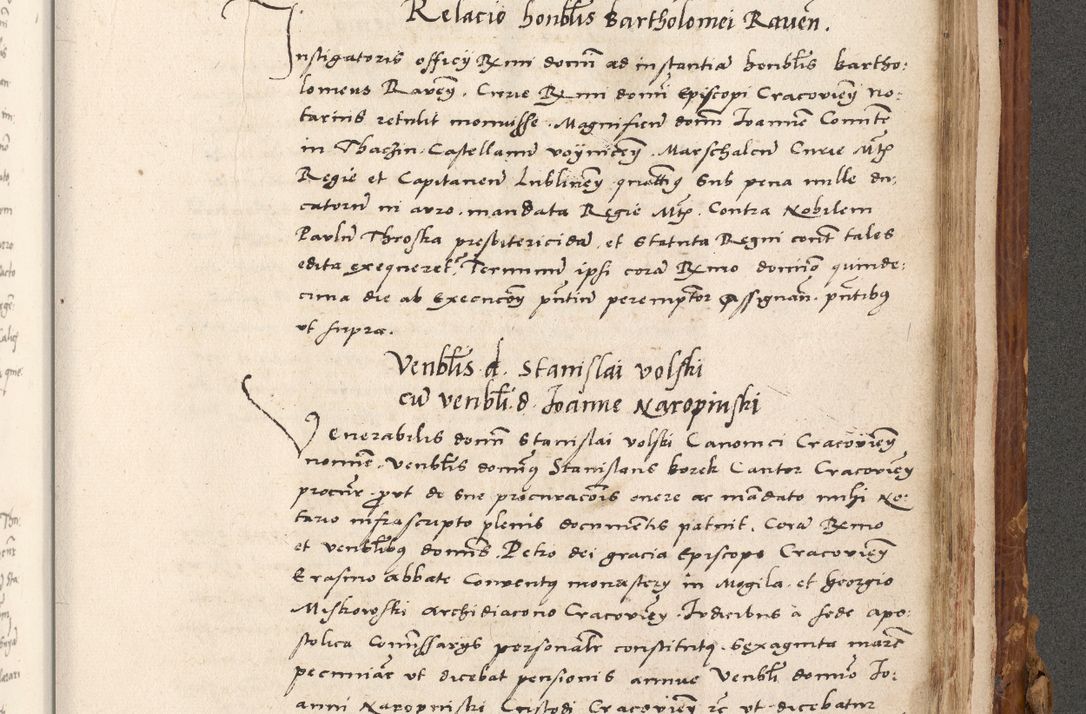 Relacio honblis Bartholomei Raven.
Instigatoris officy Rmi domi ad instantia honblis bartho:
lomeus Raveny. Curie Rmi domi Episcopi Cracovieny no:
tarius retulit monuisse. Magnificu domi Joannem Comite
in Thaczin. Castellanu voyniceny. Marschalcu Curie Mtis
Regie et Capitaneu Lublineny sub pena mille du:
catoru in auro. mandata Regie Mtis. Contra Nobilem
Paulu Throska presbitericida. et Statuta Regni cont tales
edita exequeret. Terminu ipsi cora Rmo domino quinde:
cima die ab execucony pntiu peremptor assignan. pntibus
ut supra.
Venblis d. Stanislai volski
cu venbli. d. Joanne Naropinski
Venerabilis domi Stanislai volski Canonici Cracovieny
nomine. Venblis domus Stanislaus borek Cantor Cracovieny
procur. prout de sue procuracois onere ac mandato mihi No:
tario infrascripto plenis documentis patuit. Cora Rmo
et venblibus domis. Petro dei gracia Episcopo Cracovieny
Erasmo abbate Conventus monastery in Mogila. et Georgio
Miskowski archidiacono Cracovieny. Judicibus a sede apo:
stolica Comissarys personalr constitutus. Sexaginta marc
pecuniar ut dicebat pensionis annue Venbli domino Jo:
anni Naropinski Custodi Cracovieny rc ut dicebatur